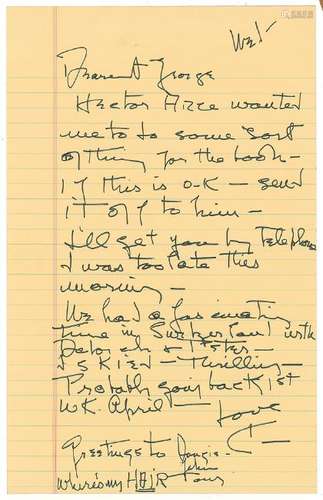 Wed-
Dearest George
Hector Arce wanted
me to do some sort
of thing for the book-
if this is O-K - send
it off to him -
I'll get you by telephone
I was too late this
morning -
We had a fascinating
time in Switzerland with
Deborah & Peter -
I SKIED - Thrilling -
Probably going back 1st
WK. April - Love
C-
Greetings to
where's my HAIR